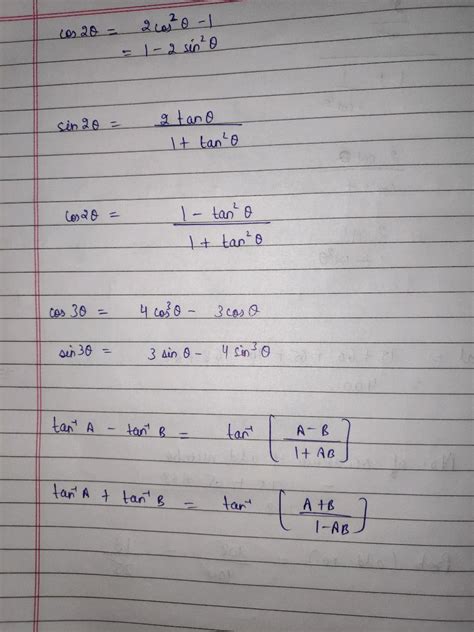 cos2θ = 2cos²θ -1
= 1 - 2 sin²θ
sin2θ = 2 tanθ / 1 + tan²θ
cos2θ = 1 - tan²θ / 1 + tan²θ
cos 3θ = 4 cos³θ - 3 cosθ
sin3θ = 3 sin θ - 4 sin³θ
tan⁻¹ A - tan⁻¹ B = tan⁻¹ [ A - B / 1 + AB ]
tan⁻¹ A + tan⁻¹ B = tan⁻¹ [ A + B / 1 - AB ]